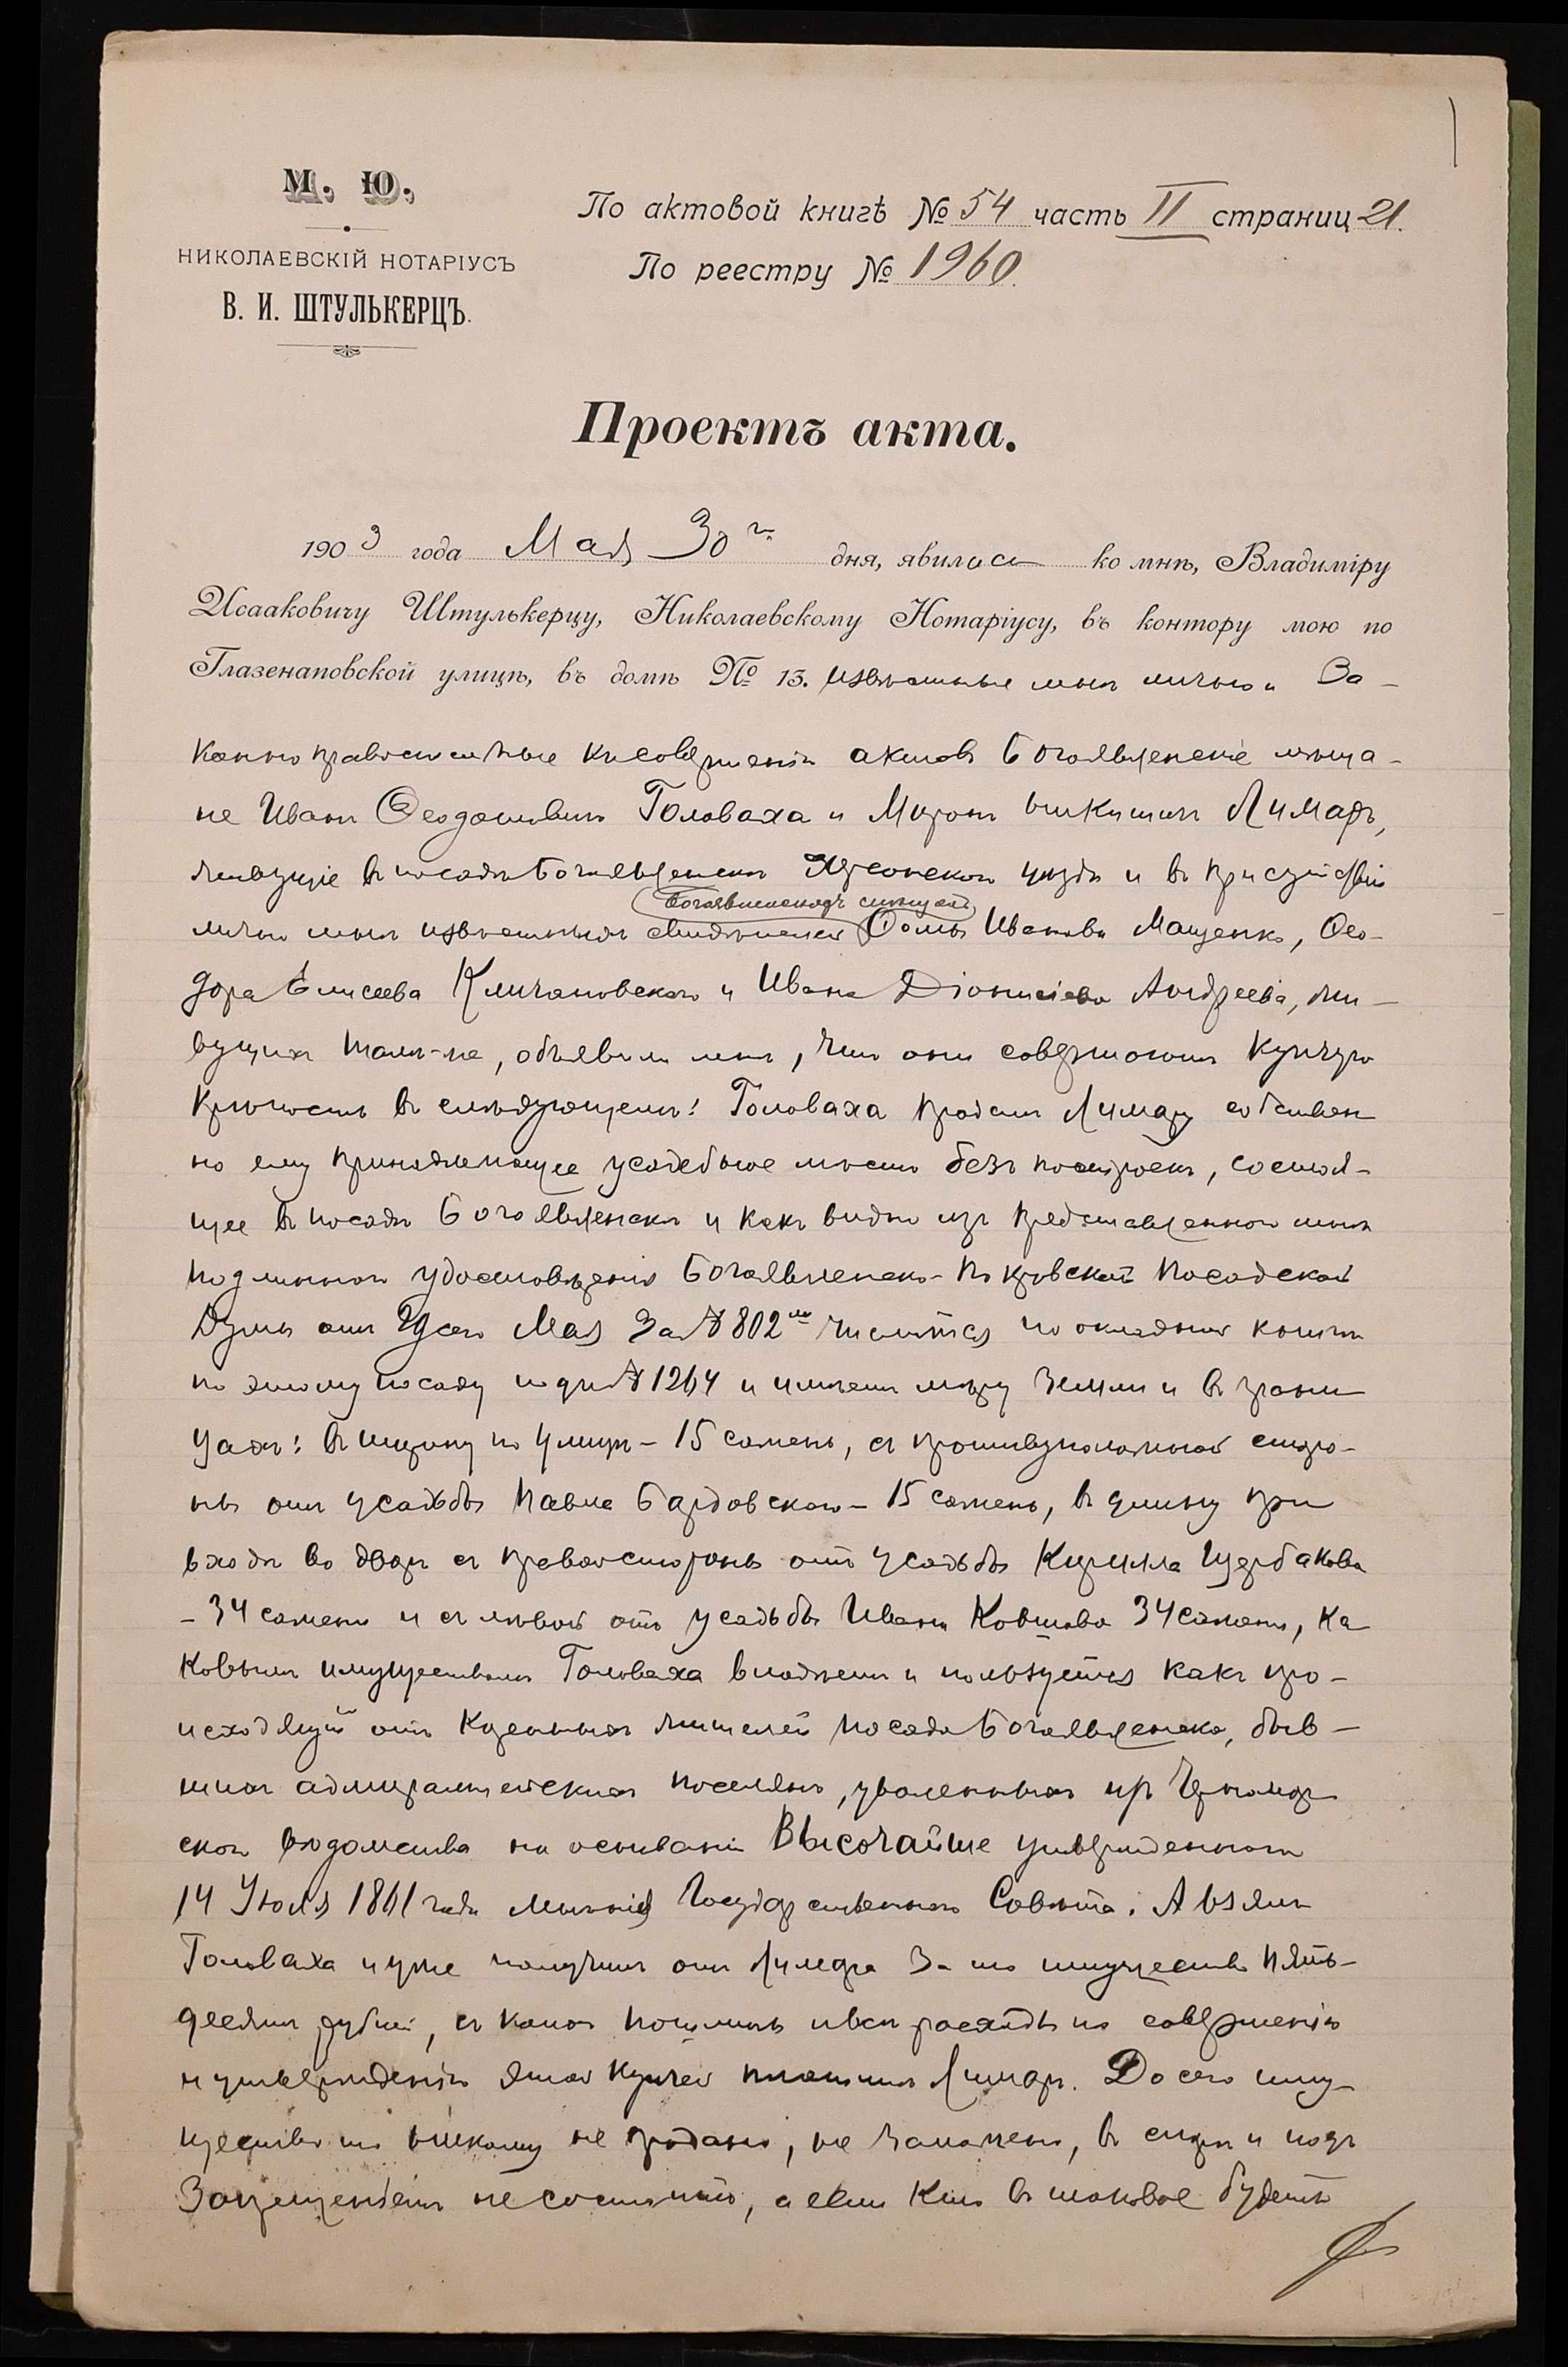 М. Ю.
НИКОЛАЕВСКІЙ НОТАРІУСЪ
В. И. ШТУЛЬКЕРЦЪ.
По актовой книгѣ № 54 часть II страниц 21.
По реестру № 1960.
Проектъ акта.
1903 года Мая 30 г. дня, явились ко мнѣ, Владиміру
Исааковичу Штулькерцу, Николаевскому Нотаріусу, въ контору мою по
Глазенаповской улицѣ, въ домѣ № 13. извѣстные мнѣ лично и За-
конно правоспособные къ совершенію актовъ Богоявленскіе мѣща-
не Иванъ Феодосіевичъ Головаха и Миронъ Никитинъ Лимарь,
живущіе въ посадѣ Богоявленскѣ Херсонскаго уѣзда и въ присутствіи
Богоявленскихъ
лично мнѣ извѣстныхъ свидѣтелей Фомы Иванова Мащенко, Фео-
дора Елисеева Клигановскаго и Ивана Діонисіева Андреева, жи-
вущихъ тамъ-же, объявили мнѣ, что они совершаютъ купчую
крѣпость въ слѣдующемъ: Головаха продалъ Лимарю собствен
но ему принадлежащее усадебное мѣсто безъ построекъ, состоя-
щее въ посадѣ Богоявленскѣ и какъ видно изъ представленнаго мнѣ
подлиннаго удостовѣренія Богоявленско-Покровской Посадской
Думы отъ 29 сего Мая За № 802 числится по окладной книгѣ
по этому посаду подъ № 1264 и имѣетъ мѣру земли въ грани
цахъ: въ ширину по улицѣ - 15 сажень, съ противуположной сторо-
ны отъ усадьбы Павла Бардовскаго - 15 сажень, въ длину при
входѣ во дворъ съ правой стороны отъ усадьбы Кирилла Щербакова
- 34 сажени и съ лѣвой отъ усадьбы Ивана Ковшова 34 сажени, ка
ковымъ имуществомъ Головаха владѣетъ и пользуется какъ про-
исходящій отъ коренныхъ жителей посада Богоявленска, быв-
шихъ адмиралтейскихъ поселянъ, уволенныхъ изъ Черномор
скаго вѣдомства на основаніи Высочайше утвержденнаго
14 Іюля 1861 года мнѣнія Государственнаго Совѣта. А взялъ
Головаха и уже получилъ отъ Лимаря За то имущество пять-
десятъ рублей, съ коихъ пошлины и всѣ расходы по совершенію
и утвержденію этой купчей платитъ Лимарь. До сего иму-
щество то никому не продано, не заложено, въ спорѣ и подъ
Запрещеніемъ не состоитъ, а если кто въ таковое будетъ